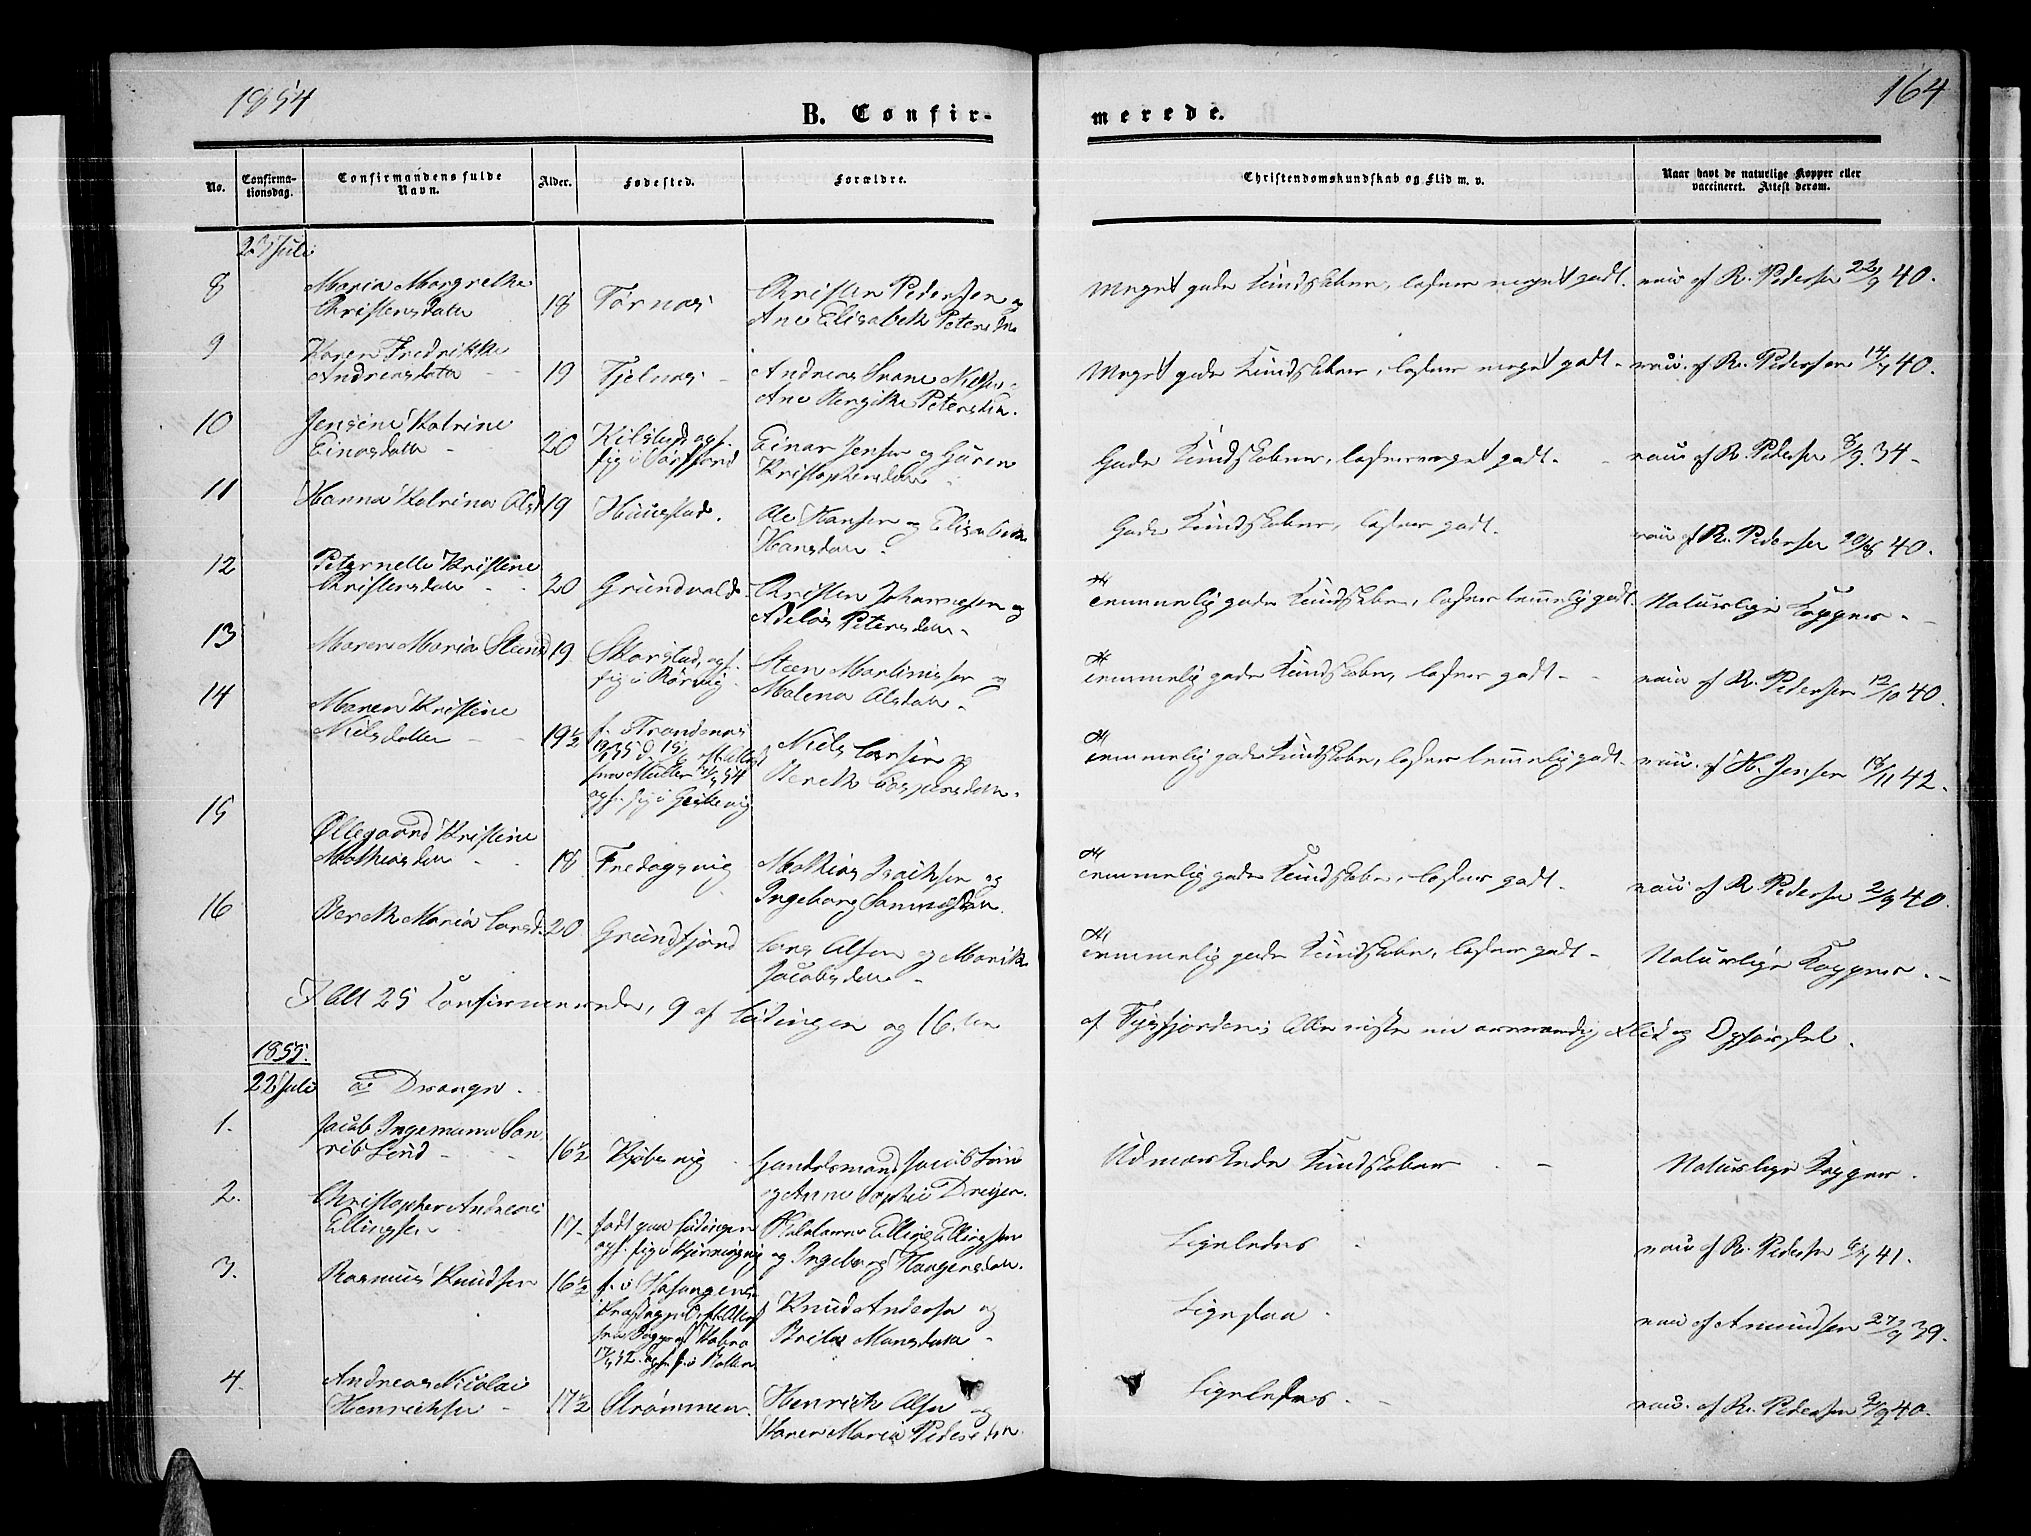 1854
164
B. Confir-
merede.
No.
Confirma-
tionsdag.
Confirmandens fulde
Navn.
Alder.
Fødested.
Forældre.
Christendomskundskab og Flid m. v.
Naar havt de naturlige Kopper eller
vaccineret. Attest derom.
23 Juli
8
Maren Margrethe
Christensdatter
18
Tornæs
Christen Pedersen og
Ane Elisabeth Petersdtr
Meget gode Kundskaber, læser meget godt.
vacc. af R. Pedersen 22/9 40.
9
Karen Fredrikke
Andreasdatter
19
Fjelnæs
Andreas Nilsen
Ane Petersdtr.
Meget gode Kundskaber, læser meget godt
vacc. af R. Pedersen 14/9 40.
10
Jensine Katrine
Einarsdatter
20
Kilstad opf.
sig i
Einar Jensen og Guren
Kristophersdatter
Gode Kundskaber, læser meget godt.
vacc af R. Pedersen 8/9. 34
11
Hanna Katrina Olsd
19
Haukstad.
Ole Hansen og Elisabeth
Hansdatter
Gode Kundskaber, læser godt.
vacc af R. Pedersen 20/8 40.
12
Peternelle Kristine
Christensdatter
20
Grundvald
Christen Johannesen og
Petersdatter
Temmelig gode Kundskaber, læser temmelig godt.
Naturlige Kopper.
13
Maren Maria Steensd
19
Skarstad, opf.
sig i Rørvig
Steen Martinussen og
Malena Olsdatter
Temmelig gode Kundskaber, læser godt
vacc af R. Pedersen 12/10 40.
14
Maren Kristine
Nielsdatter
19½
f. Trondenæs
Müller
opf. sig i
Niels Larsen og
Berith
Temmelig gode Kundskaber, læser temmelig godt
vacc. af H. Jensen 18/11 42.
15
Øllegaard Kristine
Mathiasdatter
18
Fredagsvig
Mathias Isaksen og
Ingeborg
Temmelig gode Kundskaber, læser godt.
vacc af R. Pedersen 2/9 40.
16
Berith Maria Larsd.
20
Grundfjord
Lars Olsen og Marith
Jacobsdatter
Temmelig gode Kundskaber, læser godt
Naturlige Kopper.
I Alt 25 Confirmerede, 9 af Lødingen og 16 ten
af Tysfjorden; Alle viste en Flid og Opførsel.
1855.
22 Juli
Drange
1.
Jacob Ingemann
Lund
16½
Kjøbsvig
Handelsmand Jacob Lund
og Anne Sophie Dreyer.
Udmærkede Kundskaber
Naturlige Kopper.
2.
Christopher Andreas
Ellingsen
17
født paa Lødingen
opf. sig i
Elling Ellingsen
og Ingeborg Haagensdatter
Ligeledes
vacc af R. Pedersen 41.
3.
Rasmus Knudsen
16½
Knud Andersen og
Brita Monsdatter
Ligesaa
vacc af Amundsen 27/9 39.
4.
Andreas Nicolai
Henrichsen
17½
Strømmen.
Henrich Olsen og
Karen Maria Pedersdtr
Ligeledes.
vacc. af R. Pedersen 2/9 40.